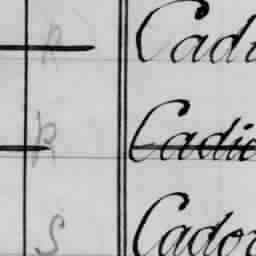 R Cadi
R Cadic
S Cado